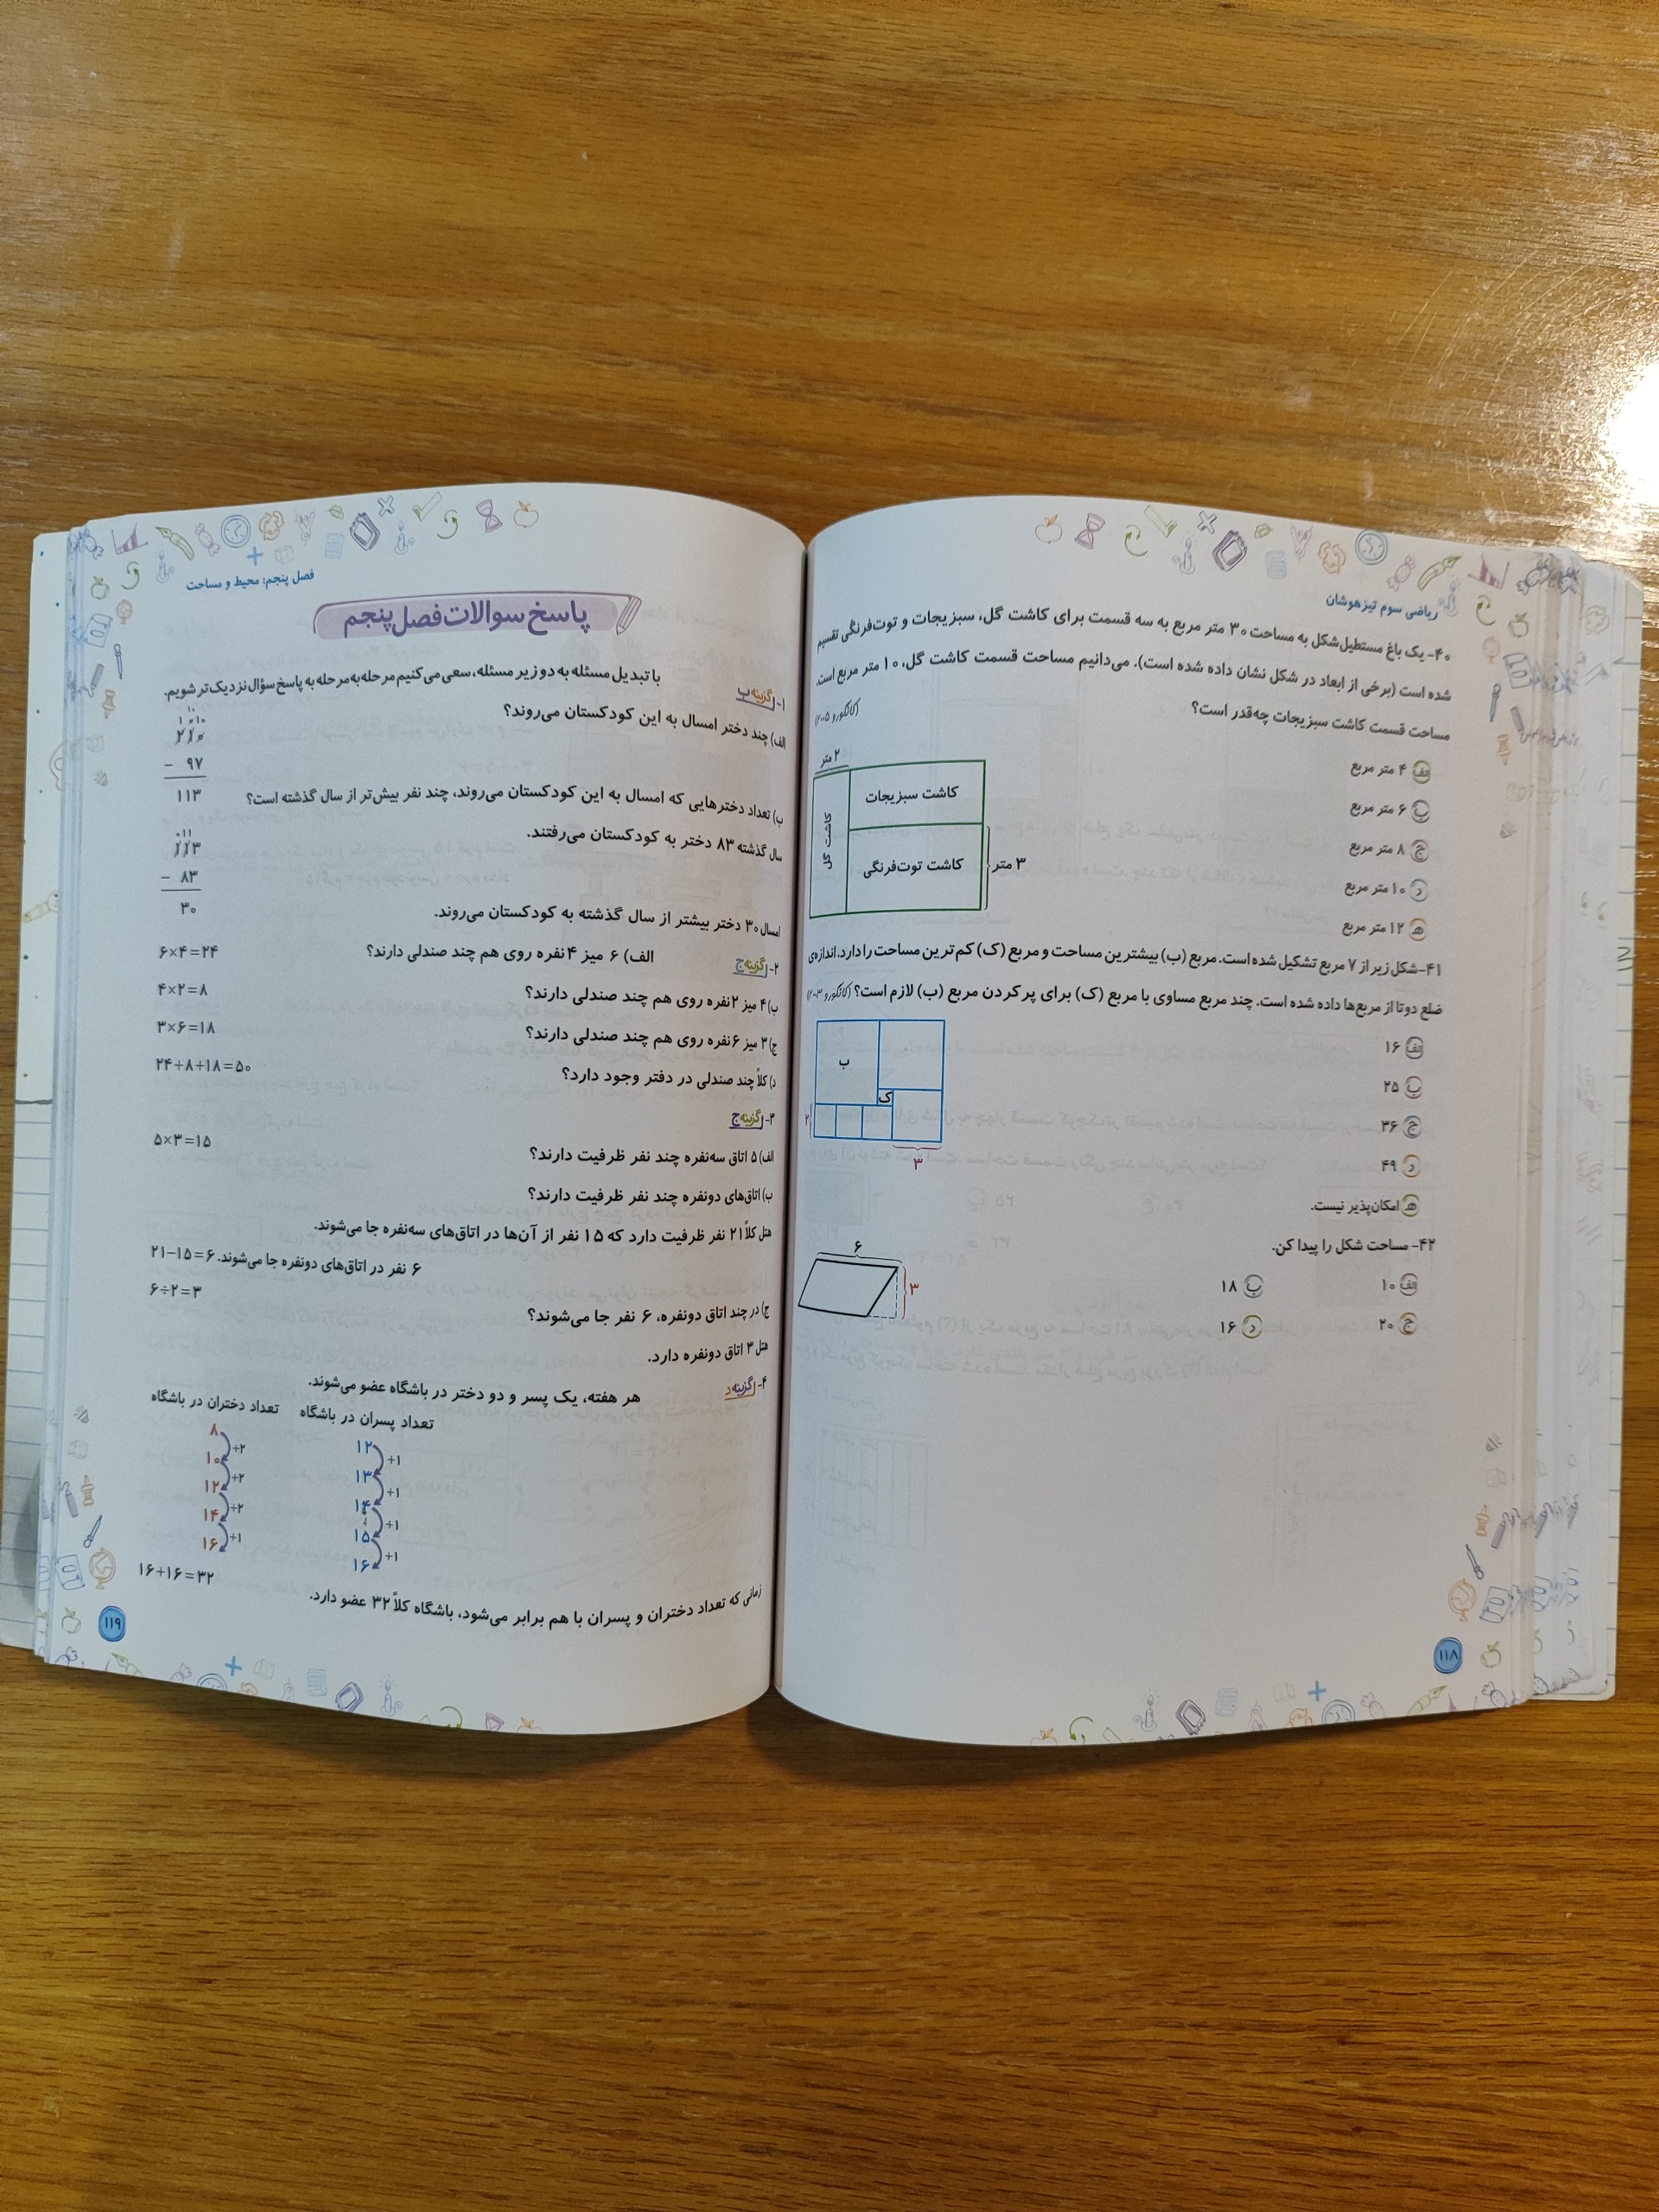 ریاضی سوم تیزهوشان
۴۰- یک باغ مستطیل‌شکل به مساحت ۳۰ متر مربع به سه قسمت برای کاشت گل، سبزیجات و توت‌فرنگی تقسیم
شده است (برخی از ابعاد در شکل نشان داده شده است). می‌دانیم مساحت قسمت کاشت گل، ۱۰ متر مربع است.
مساحت قسمت کاشت سبزیجات چه‌قدر است؟
(کانگورو ۲۰۰۵)
الف ۴ متر مربع
ب ۶ متر مربع
ج ۸ متر مربع
د ۱۰ متر مربع
هـ ۱۲ متر مربع
۲ متر
کاشت سبزیجات
کاشت گل
کاشت توت‌فرنگی
۳ متر
۴۱- شکل زیر از ۷ مربع تشکیل شده است. مربع (ب) بیشترین مساحت و مربع (ک) کم‌ترین مساحت را دارد. اندازه‌ی
ضلع دوتا از مربع‌ها داده شده است. چند مربع مساوی با مربع (ک) برای پر کردن مربع (ب) لازم است؟ (کانگورو ۲۰۰۳)
الف ۱۶
ب ۲۵
ج ۳۶
د ۴۹
هـ امکان‌پذیر نیست.
ب
ک
۲
۳
۴۲- مساحت شکل را پیدا کن.
الف ۱۰
ب ۱۸
ج ۲۰
د ۱۶
۶
۳
۱۱۸
فصل پنجم: محیط و مساحت
پاسخ سوالات فصل پنجم
۱- گزینه ب
با تبدیل مسئله به دو زیر مسئله، سعی می‌کنیم مرحله‌به‌مرحله به پاسخ سؤال نزدیک‌تر شویم.
الف) چند دختر امسال به این کودکستان می‌روند؟
۱۰
۱ ۰ ۱۰
۲۱۰
− ۹۷
۱۱۳
ب) تعداد دخترهایی که امسال به این کودکستان می‌روند، چند نفر بیش‌تر از سال گذشته است؟
سال گذشته ۸۳ دختر به کودکستان می‌رفتند.
۰ ۱۱
۱۱۳
− ۸۳
۳۰
امسال ۳۰ دختر بیشتر از سال گذشته به کودکستان می‌روند.
۲- گزینه ج
الف) ۶ میز ۴ نفره روی هم چند صندلی دارند؟ ۶×۴=۲۴
ب) ۴ میز ۲نفره روی هم چند صندلی دارند؟ ۴×۲=۸
ج) ۳ میز ۶نفره روی هم چند صندلی دارند؟ ۳×۶=۱۸
د) کلاً چند صندلی در دفتر وجود دارد؟ ۲۴+۸+۱۸=۵۰
۳- گزینه ج
الف) ۵ اتاق سه‌نفره چند نفر ظرفیت دارند؟ ۵×۳=۱۵
ب) اتاق‌های دونفره چند نفر ظرفیت دارند؟
هتل کلاً ۲۱ نفر ظرفیت دارد که ۱۵ نفر از آن‌ها در اتاق‌های سه‌نفره جا می‌شوند.
۶ نفر در اتاق‌های دونفره جا می‌شوند. ۲۱−۱۵=۶
ج) در چند اتاق دونفره، ۶ نفر جا می‌شوند؟ ۶÷۲=۳
هتل ۳ اتاق دونفره دارد.
۴- گزینه د
هر هفته، یک پسر و دو دختر در باشگاه عضو می‌شوند.
تعداد پسران در باشگاه تعداد دختران در باشگاه
۱۲ ۸
+۱ +۲
۱۳ ۱۰
+۱ +۲
۱۴ ۱۲
+۱ +۲
۱۵ ۱۴
+۱ +۱
۱۶ ۱۶
۱۶+۱۶=۳۲
زمانی که تعداد دختران و پسران با هم برابر می‌شود، باشگاه کلاً ۳۲ عضو دارد.
۱۱۹